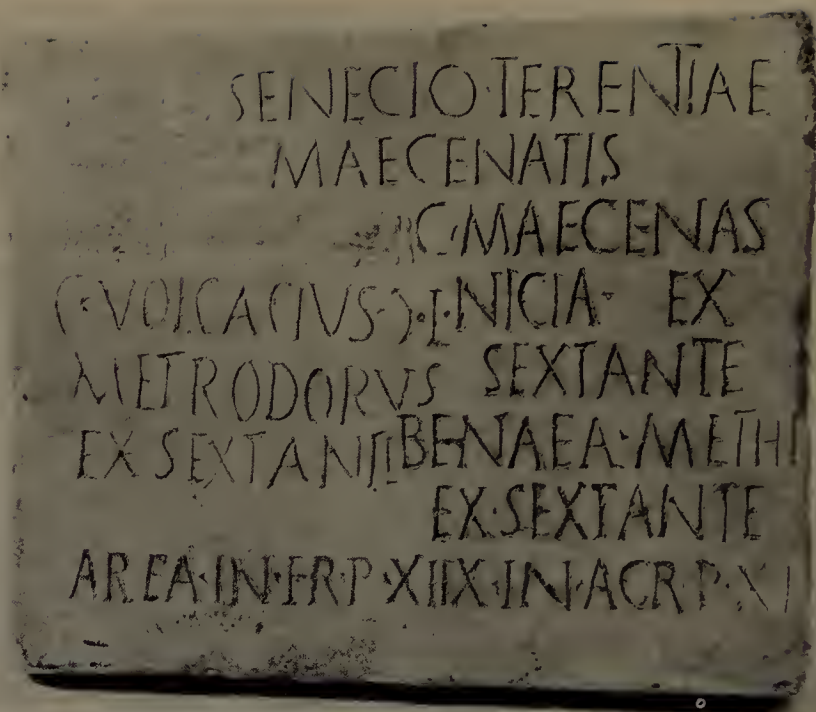 SENECIO·TERENTIAE
MAECENATIS
C·MAECENAS
C·VOLCACIVS·Ɔ·L·NICIA· EX
METRODORVS SEXTANTE
EX SEXTANTE BENAEA·METH
EX·SEXTANTE
AREA·IN·FR·P·XIIX·IN·AGR·P·XI